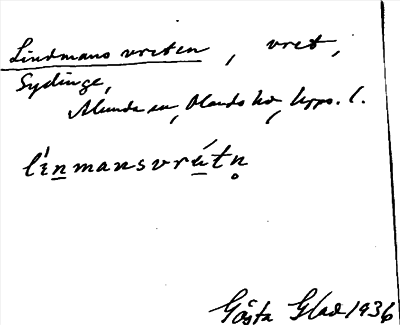 Lindmansvreten, vret,
Sydinge,
Alunda sn, Olands hd, Upps. l.
lı́nmansvrétn̥
Gösta Glad 1936